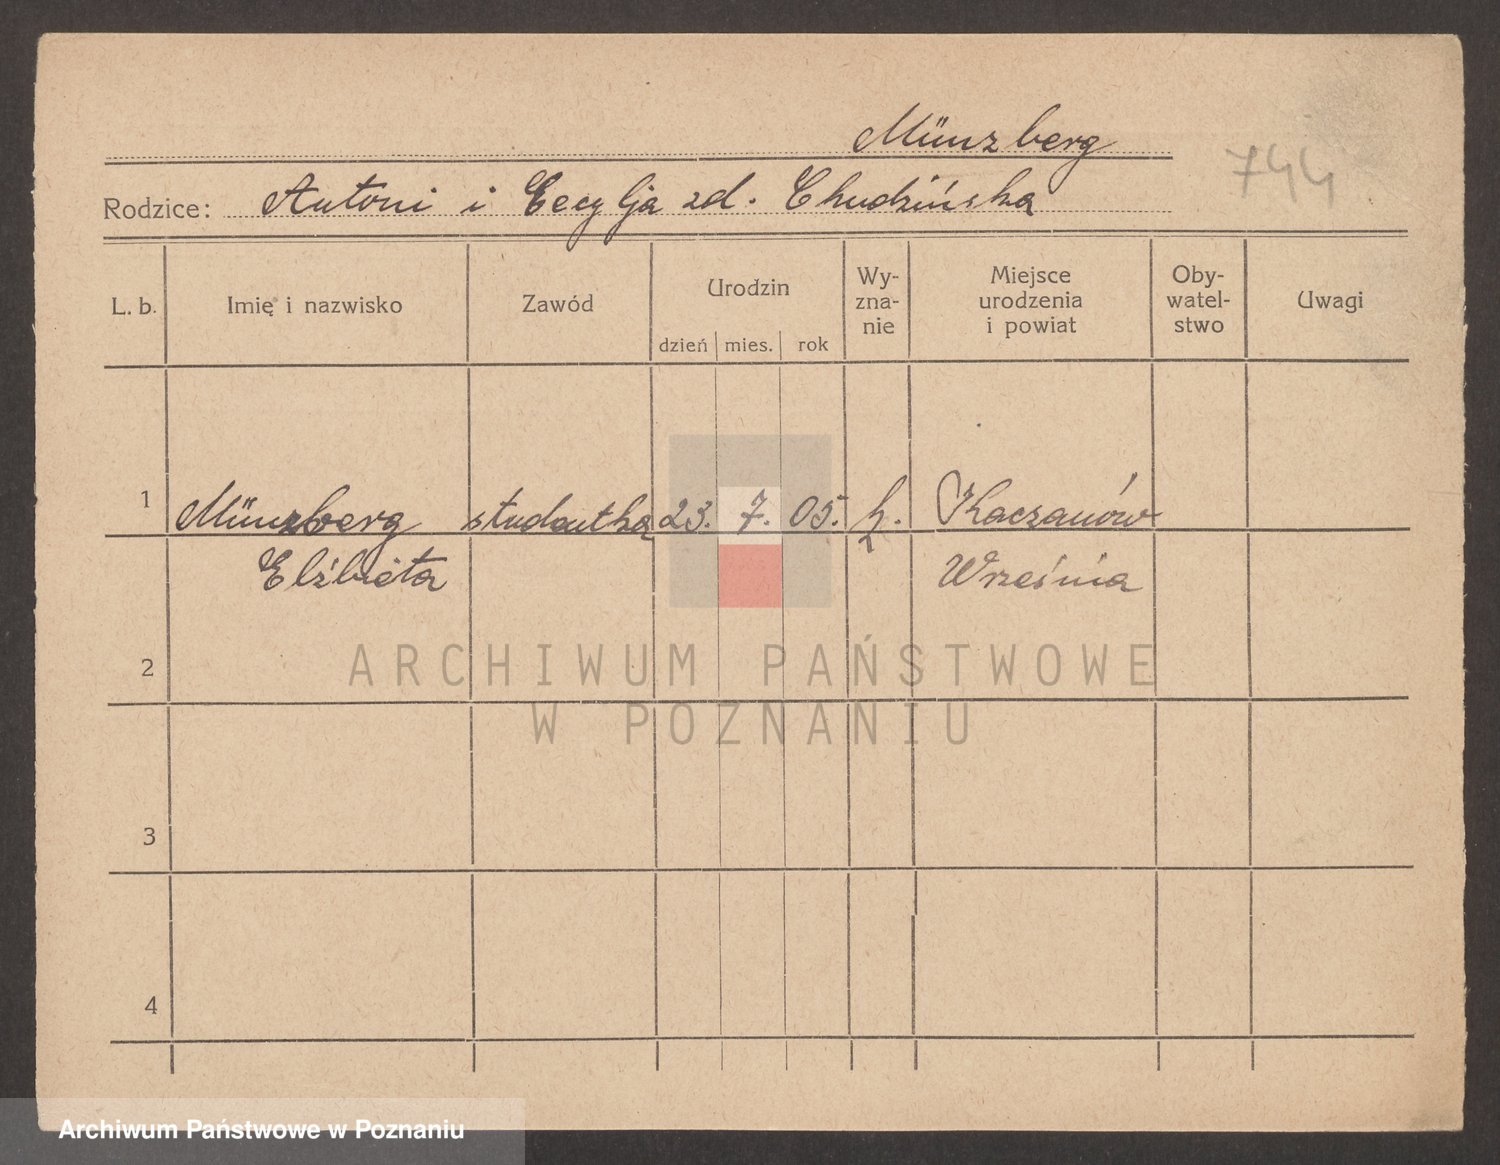 Münzberg
744
Rodzice: Antoni i Cecylja zd. Chudzińska
L. b. Imię i nazwisko Zawód Urodzin Wy-zna-nie Miejsce urodzenia i powiat Oby-watel-stwo Uwagi
dzień mies. rok
1 Münzberg studentka 23. 7. 05. k. Kaczanów
Elżbieta Września
2
ARCHIWUM PAŃSTWOWE
W POZNANIU
3
4
Archiwum Państwowe w Poznaniu